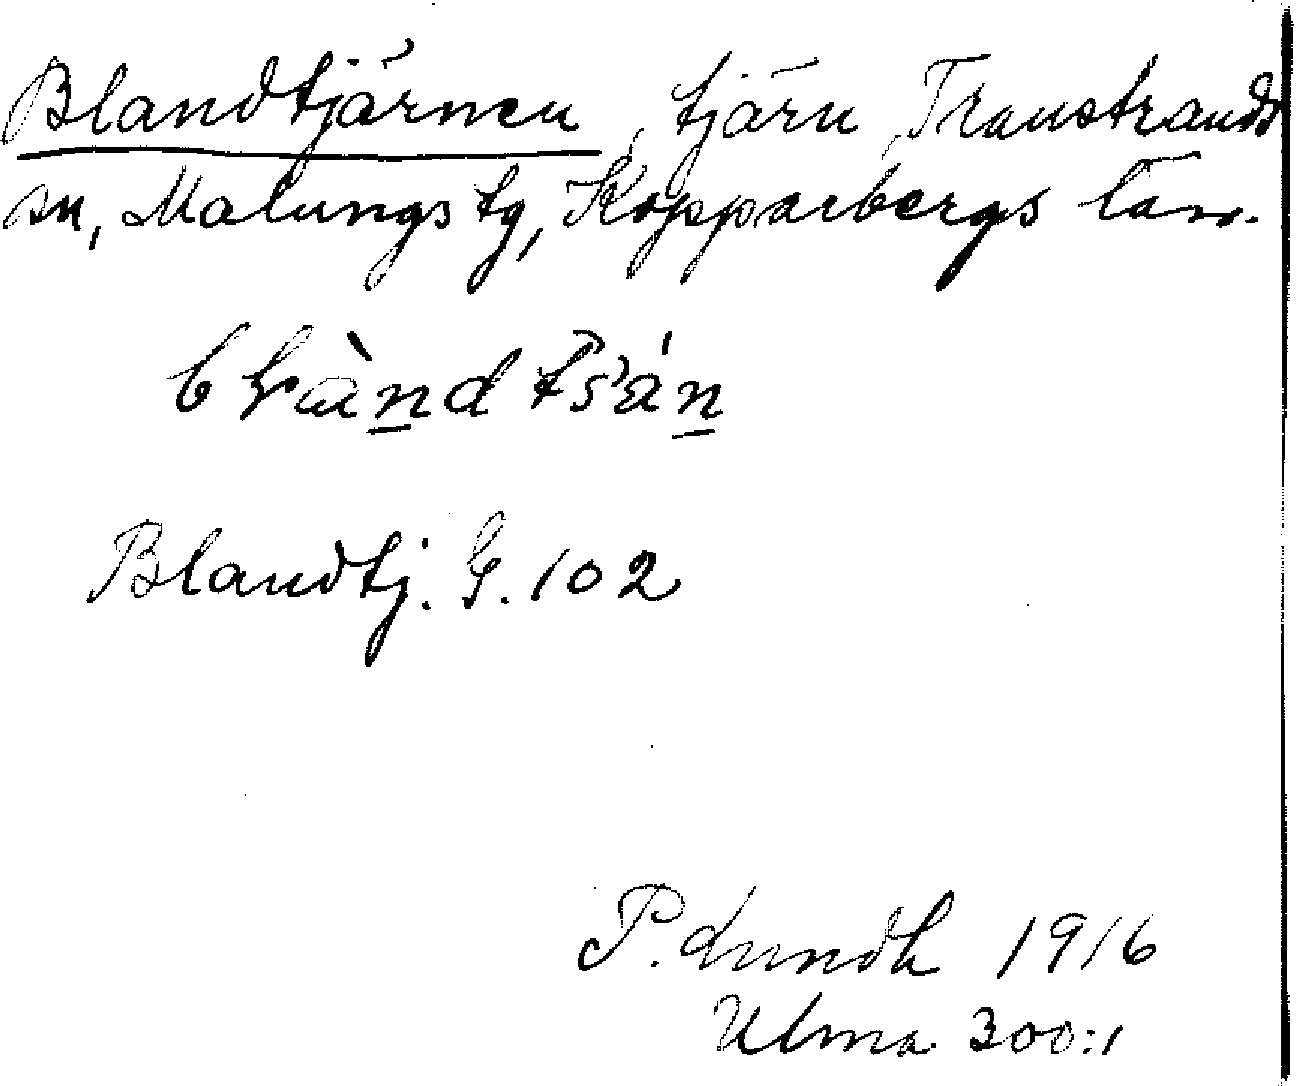 Blandtjärnen, tjärn, Transtrands
sn, Malungs tg, Kopparbergs län.
Blandtj. G. 102
P. Lundh 1916
Ulma 300:1